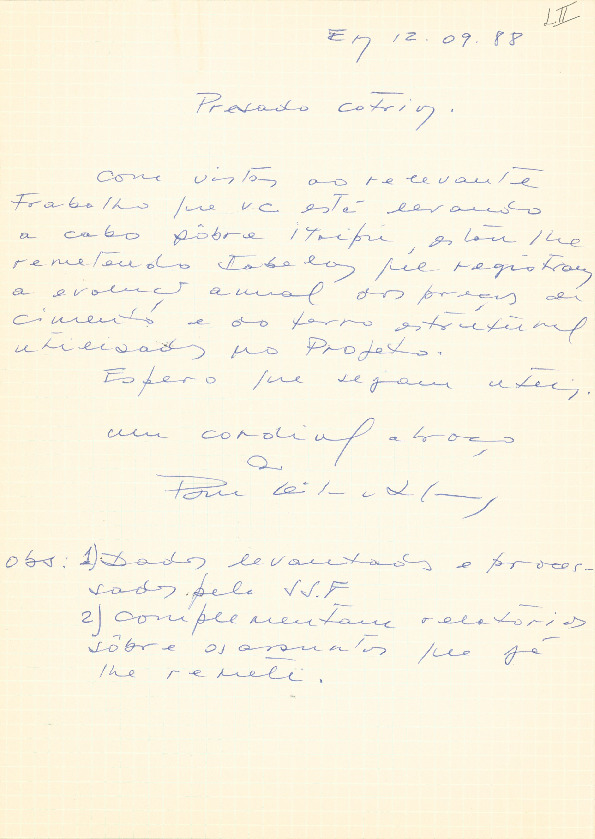 L.II
Em 12.09.88
Presado Cotrim.
Com vistas ao relevante
trabalho que vc está levando
a cabo sôbre Itaipú, estou lhe
remetendo Tabelas que registram
a evoluç. anual dos preços do
cimento e do ferro estrutural
utilizados no Projeto.
Espero que sejam uteis.
um cordial abraço
do
Obs: 1) Dados levantados e proces-
sados pela SS.F
2) Complementam relatórios
sôbre os assuntos que já
lhe remeti.